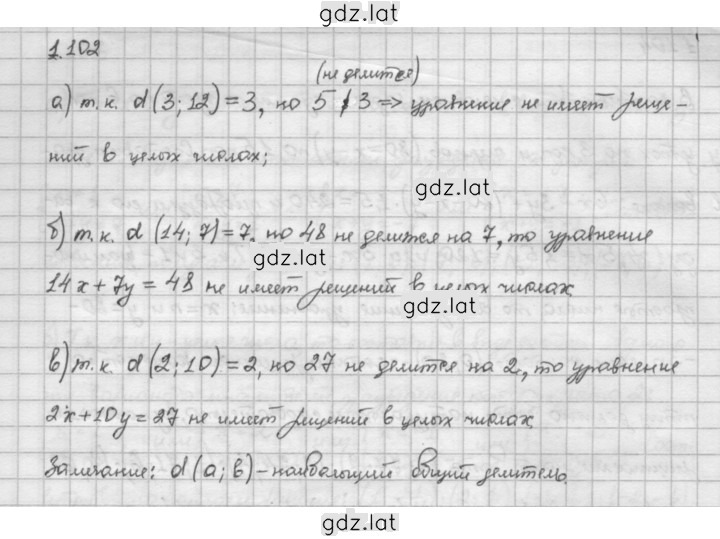 gdz.lat
1.102
(не делится)
а) т.к. d(3; 12) = 3, но 5 ∤ 3 => уравнение не имеет реше-
ний в целых числах;
gdz.lat
б) т.к. d (14; 7) = 7, но 48 не делится на 7, то уравнение
gdz.lat
14x + 7y = 48 не имеет решений в целых числах
gdz.lat
в) т.к. d(2; 10) = 2, но 27 не делится на 2, то уравнение
gdz.lat
2x + 10y = 27 не имеет решений в целых числах
Замечание: d(a; b) – наибольший общий делитель.
gdz.lat